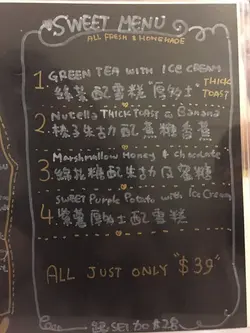 SWEET MENU
ALL FRESH & HOMEMADE
1 GREEN TEA WITH ICE CREAM
綠茶配雪糕厚多士 THICK TOAST
2 Nutella THICK TOAST & Banana
榛子朱古力配香蕉
3 Marshmallow Honey & chocolate
綿花糖配朱古力及蜜糖
4 SWEET Purple Potato with Ice Cream
紫薯厚多士配雪糕
ALL JUST ONLY "$39"